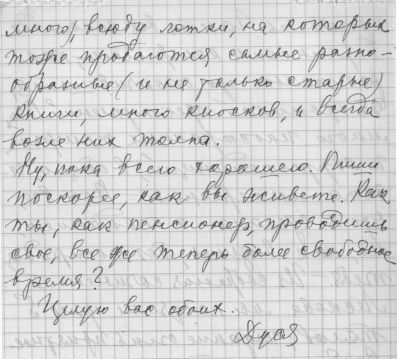 много), всюду лотки, на которых
тоже продаются самые разно-
образные (и не только старые)
книги, много киосков, и всегда
возле них толпа.
Ну, пока всего хорошего. Пиши
поскорее, как вы живете. Как
ты, как пенсионер, проводишь
свое, все же теперь более свободное
время?
Целую вас обоих.
Дуся